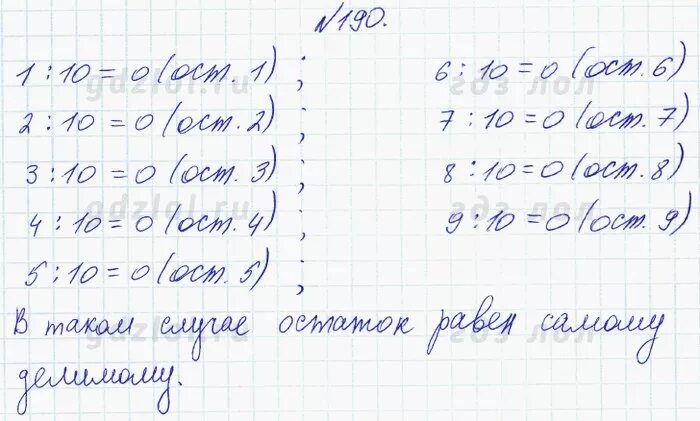 №190.
1 : 10 = 0 (ост. 1) ; 6 : 10 = 0 (ост. 6)
2 : 10 = 0 (ост. 2) ; 7 : 10 = 0 (ост. 7)
3 : 10 = 0 (ост. 3) ; 8 : 10 = 0 (ост. 8)
4 : 10 = 0 (ост. 4) ; 9 : 10 = 0 (ост. 9)
5 : 10 = 0 (ост. 5) ;
В таком случае остаток равен самому
делимому.
gdzlol.ru
гдз лол
gdzlol.ru
гдз лол
gdzlol.ru
гдз лол